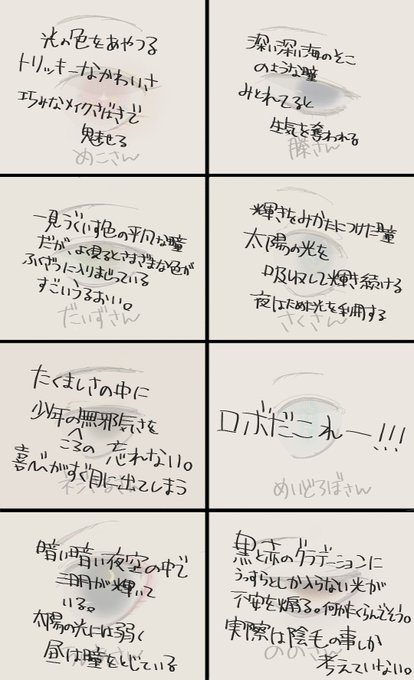 光の色をあやつる
トリッキーなかわいさ
巧みなメイクさばきで
魅せる
めこさん
深い深い海のそこ
のような瞳
みとれてると
生気を奪われる
藤さん
一見うぐいす色の平凡な瞳
だが、よく見るとさまざまな色が
ふくざつに入りまじっている
すごいうるおい。
だいずさん
輝きをみかたにつけた瞳
太陽の光を
吸収して輝き続ける
夜はためた光を利用する
さくさん
たくましさの中に
少年の無邪気さを
ころの
忘れない。
喜びがすぐ目に出てしまう
ロボだこれー!!!
めいどろぼさん
暗い暗い夜空の中で
三日月が輝いて
いる。
太陽の光には弱く
昼は瞳をとじている
黒と赤のグラデーションに
うっすらとしか入らない光が
不安を煽る。何かたくらんでそう。
実際は陰毛の事しか
考えていない。
ののさん